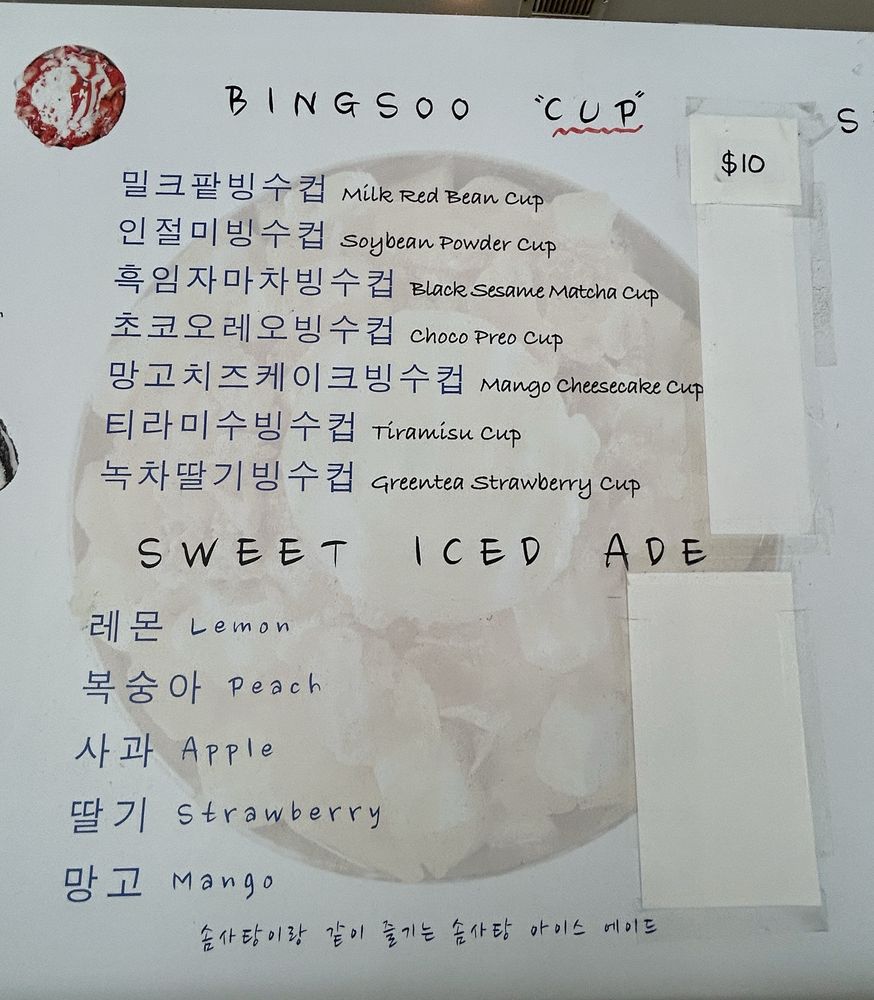 BINGSOO "CUP"
$10
밀크팥빙수컵 Milk Red Bean Cup
인절미빙수컵 Soybean Powder Cup
흑임자마차빙수컵 Black Sesame Matcha Cup
초코오레오빙수컵 Choco Preo Cup
망고치즈케이크빙수컵 Mango Cheesecake Cup
티라미수빙수컵 Tiramisu Cup
녹차딸기빙수컵 Greentea Strawberry Cup
SWEET ICED ADE
레몬 Lemon
복숭아 Peach
사과 Apple
딸기 Strawberry
망고 Mango
솜사탕이랑 같이 즐기는 솜사탕 아이스 에이드